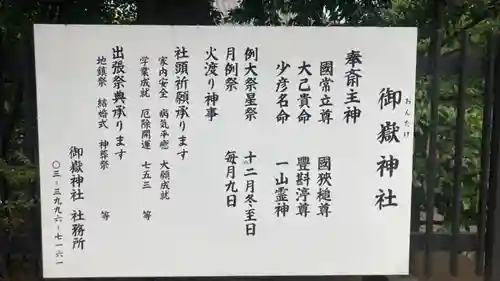 御嶽神社
おんたけ
奉斎主神
國常立尊　國狹槌尊
大己貴命　豐斟渟尊
少彦名命　一山霊神
例大祭星祭　十二月冬至日
月例祭　毎月九日
火渡り神事
社頭祈願承ります
家内安全　病気平癒　大願成就
学業成就　厄除開運　七五三　等
出張祭典承ります
地鎮祭　結婚式　神葬祭　等
御嶽神社　社務所
〇三-三九九六-七一六一